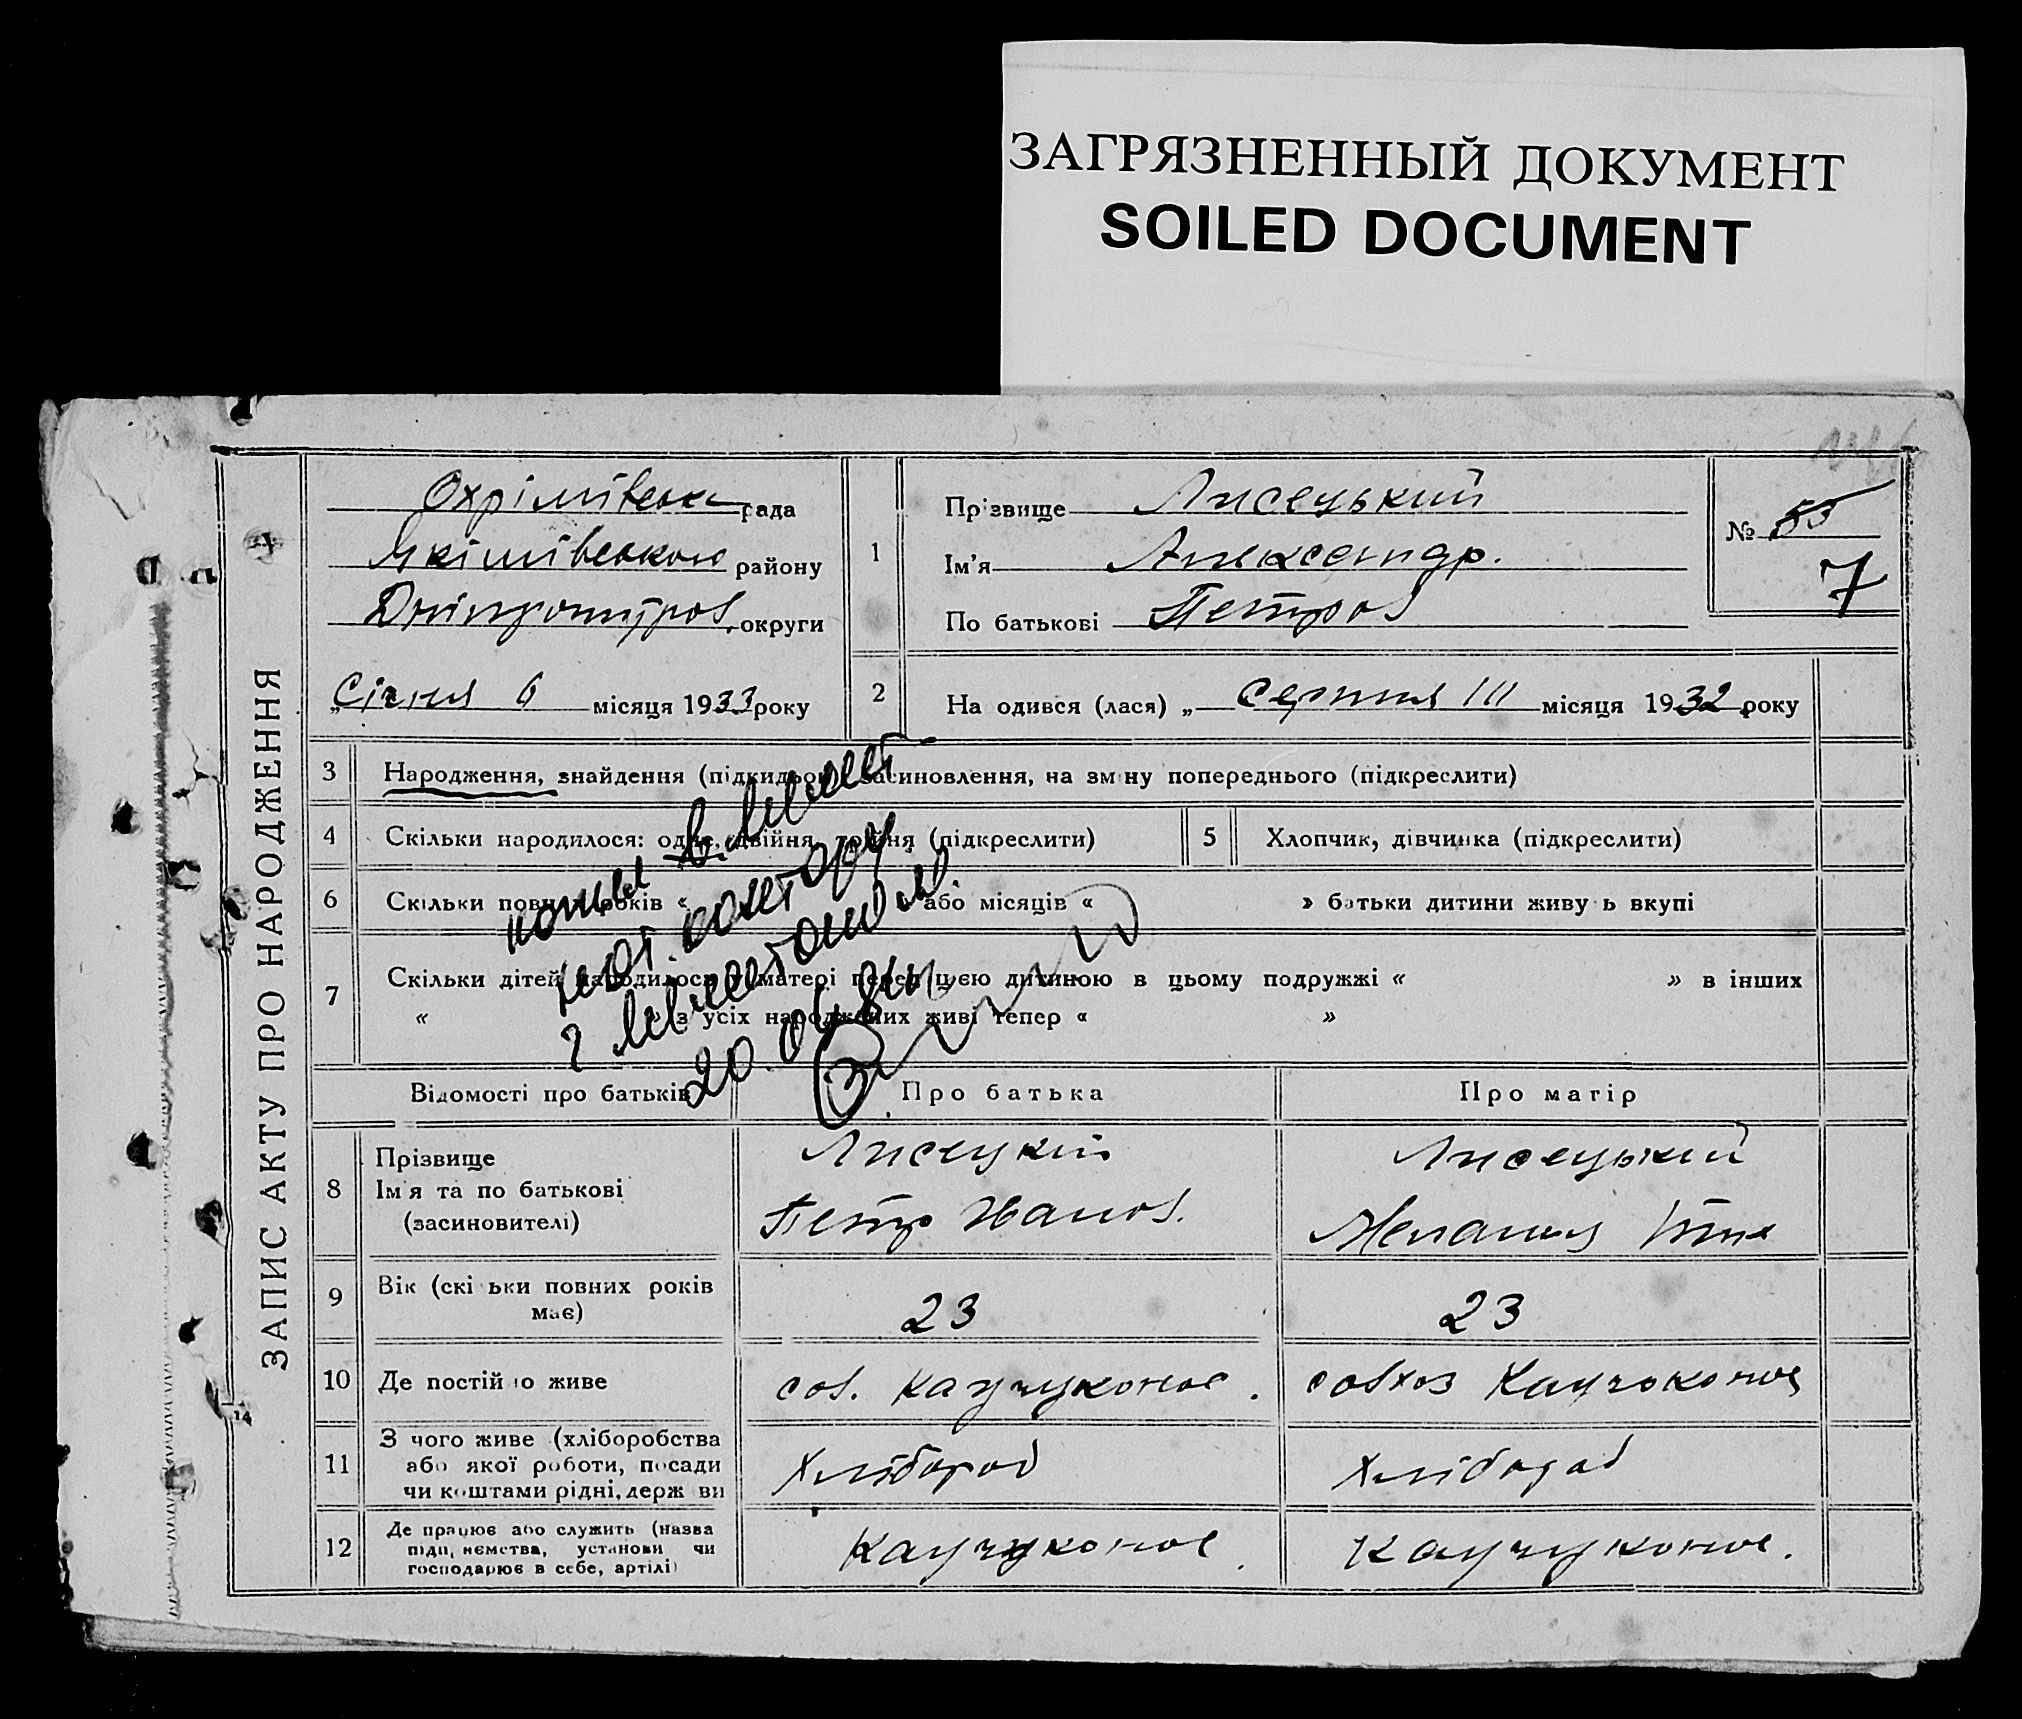 ЗАГРЯЗНЕННЫЙ ДОКУМЕНТ
SOILED DOCUMENT
ЗАПИС АКТУ ПРО НАРОДЖЕННЯ
Охрімівська рада
Якімівського району
округи
„Січня 6 місяця 1933 року
1
Прізвище Лисецький
Ім'я Александр.
По батькові Петров
№ 55
7
2 На одився (лася) „ Серпня III місяця 1932 року
3 Народження, знайдення (підкидьок), засиновлення, на зміну попереднього (підкреслити)
4 Скільки народилося: одне, двійня, трійня (підкреслити)
5 Хлопчик, дівчинка (підкреслити)
6 Скільки повних років « » або місяців « » батьки дитини живу ь вкупі
7 Скільки дітей народилося у матері перед цією дитиною в цьому подружжі « » в інших
« » з усіх народжених живі тепер « »
копия
нот. контору
г.
20.04
Відомості про батьків
Про батька
Про матір
8 Прізвище
Ім'я та по батькові
(засиновителі)
Лисецкій
Петр Иванов.
Лисецький
Мелания
9 Вік (скі ьки повних років
має)
23
23
10 Де постій о живе
сов. Каучуконос.
совхоз Каучоконос
11 З чого живе (хліборобства
або якої роботи, посади
чи коштами рідні, держ ви
Хлібороб
Хлібороб
12 Де працює або служить (назва
підп, иємства, установи чи
господарює в себе, артілі)
Каучуконос.
Каучуконос.
14